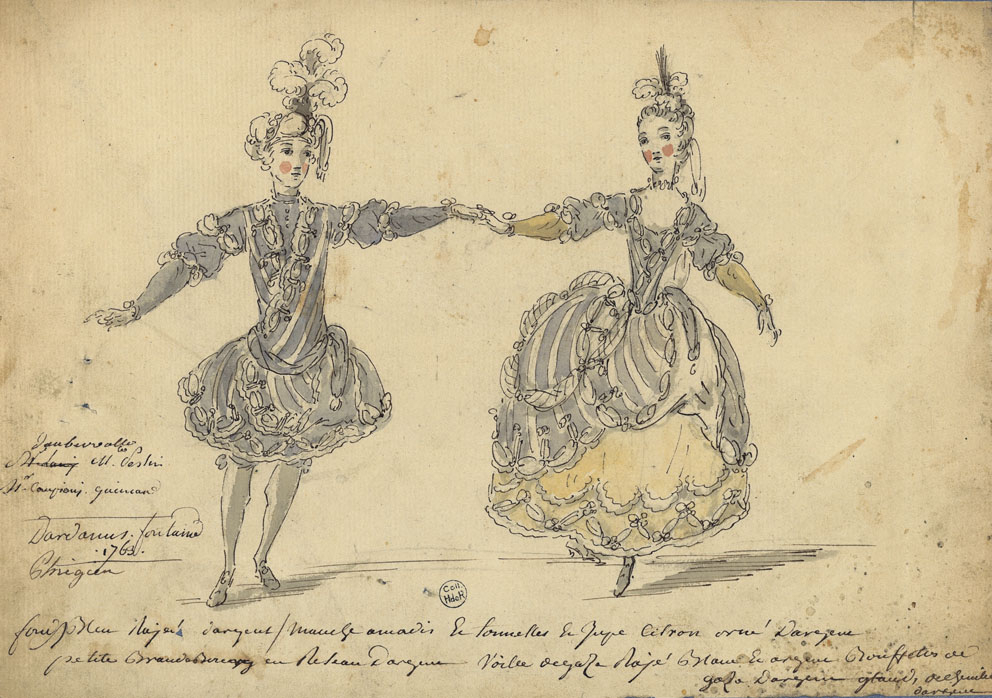 Dauberval
M. Vestris
Campioni, guimard
Dardanus. fontaine
1763.
Phrigien
fond Bleu Rajéé dargent / Manche amadis Et tonnelles Et Jupe Citron orné Dargent
petite Brandebourg en Reseau Dargent Voille de gaze Rajé Blanc Et argent Bouffettes de
gaze Dargent glands de
dargent
Coll.
HdeR